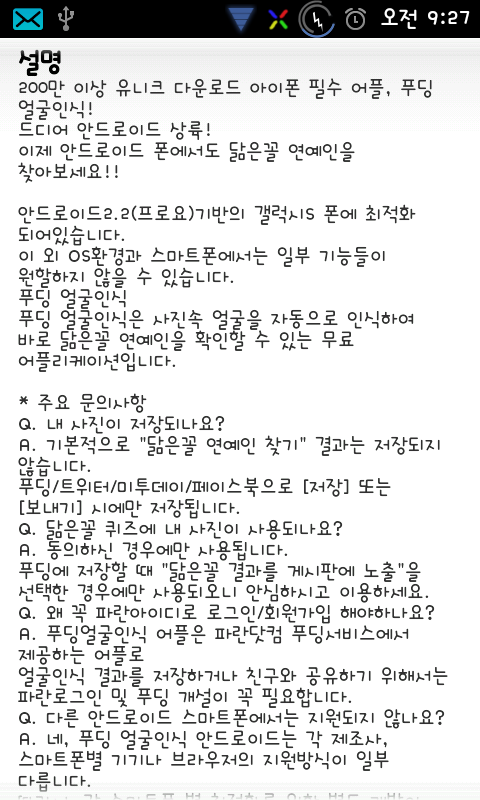 오전 9:27
설명
200만 이상 유니크 다운로드 아이폰 필수 어플, 푸딩
얼굴인식!
드디어 안드로이드 상륙!
이제 안드로이드 폰에서도 닮은꼴 연예인을
찾아보세요!!
안드로이드2.2(프로요)기반의 갤럭시S 폰에 최적화
되어있습니다.
이 외 OS환경과 스마트폰에서는 일부 기능들이
원할하지 않을 수 있습니다.
푸딩 얼굴인식
푸딩 얼굴인식은 사진속 얼굴을 자동으로 인식하여
바로 닮은꼴 연예인을 확인할 수 있는 무료
어플리케이션입니다.
* 주요 문의사항
Q. 내 사진이 저장되나요?
A. 기본적으로 "닮은꼴 연예인 찾기" 결과는 저장되지
않습니다.
푸딩/트위터/미투데이/페이스북으로 [저장] 또는
[보내기] 시에만 저장됩니다.
Q. 닮은꼴 퀴즈에 내 사진이 사용되나요?
A. 동의하신 경우에만 사용됩니다.
푸딩에 저장할 때 "닮은꼴 결과를 게시판에 노출"을
선택한 경우에만 사용되오니 안심하시고 이용하세요.
Q. 왜 꼭 파란아이디로 로그인/회원가입 해야하나요?
A. 푸딩얼굴인식 어플은 파란닷컴 푸딩서비스에서
제공하는 어플로
얼굴인식 결과를 저장하거나 친구와 공유하기 위해서는
파란로그인 및 푸딩 개설이 꼭 필요합니다.
Q. 다른 안드로이드 스마트폰에서는 지원되지 않나요?
A. 네, 푸딩 얼굴인식 안드로이드는 각 제조사,
스마트폰별 기기나 브라우저의 지원방식이 일부
다릅니다.